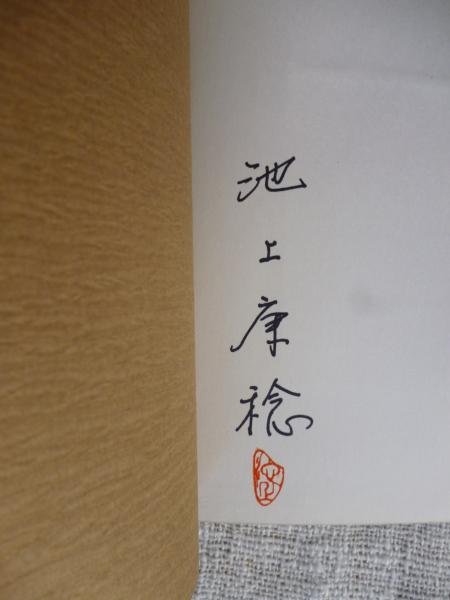 池上康稔